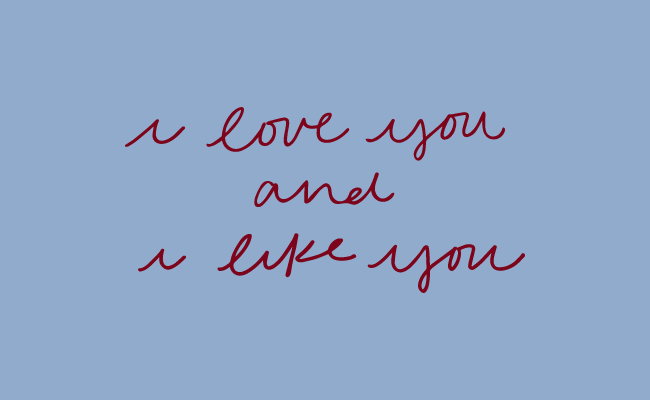 i love you
and
i like you